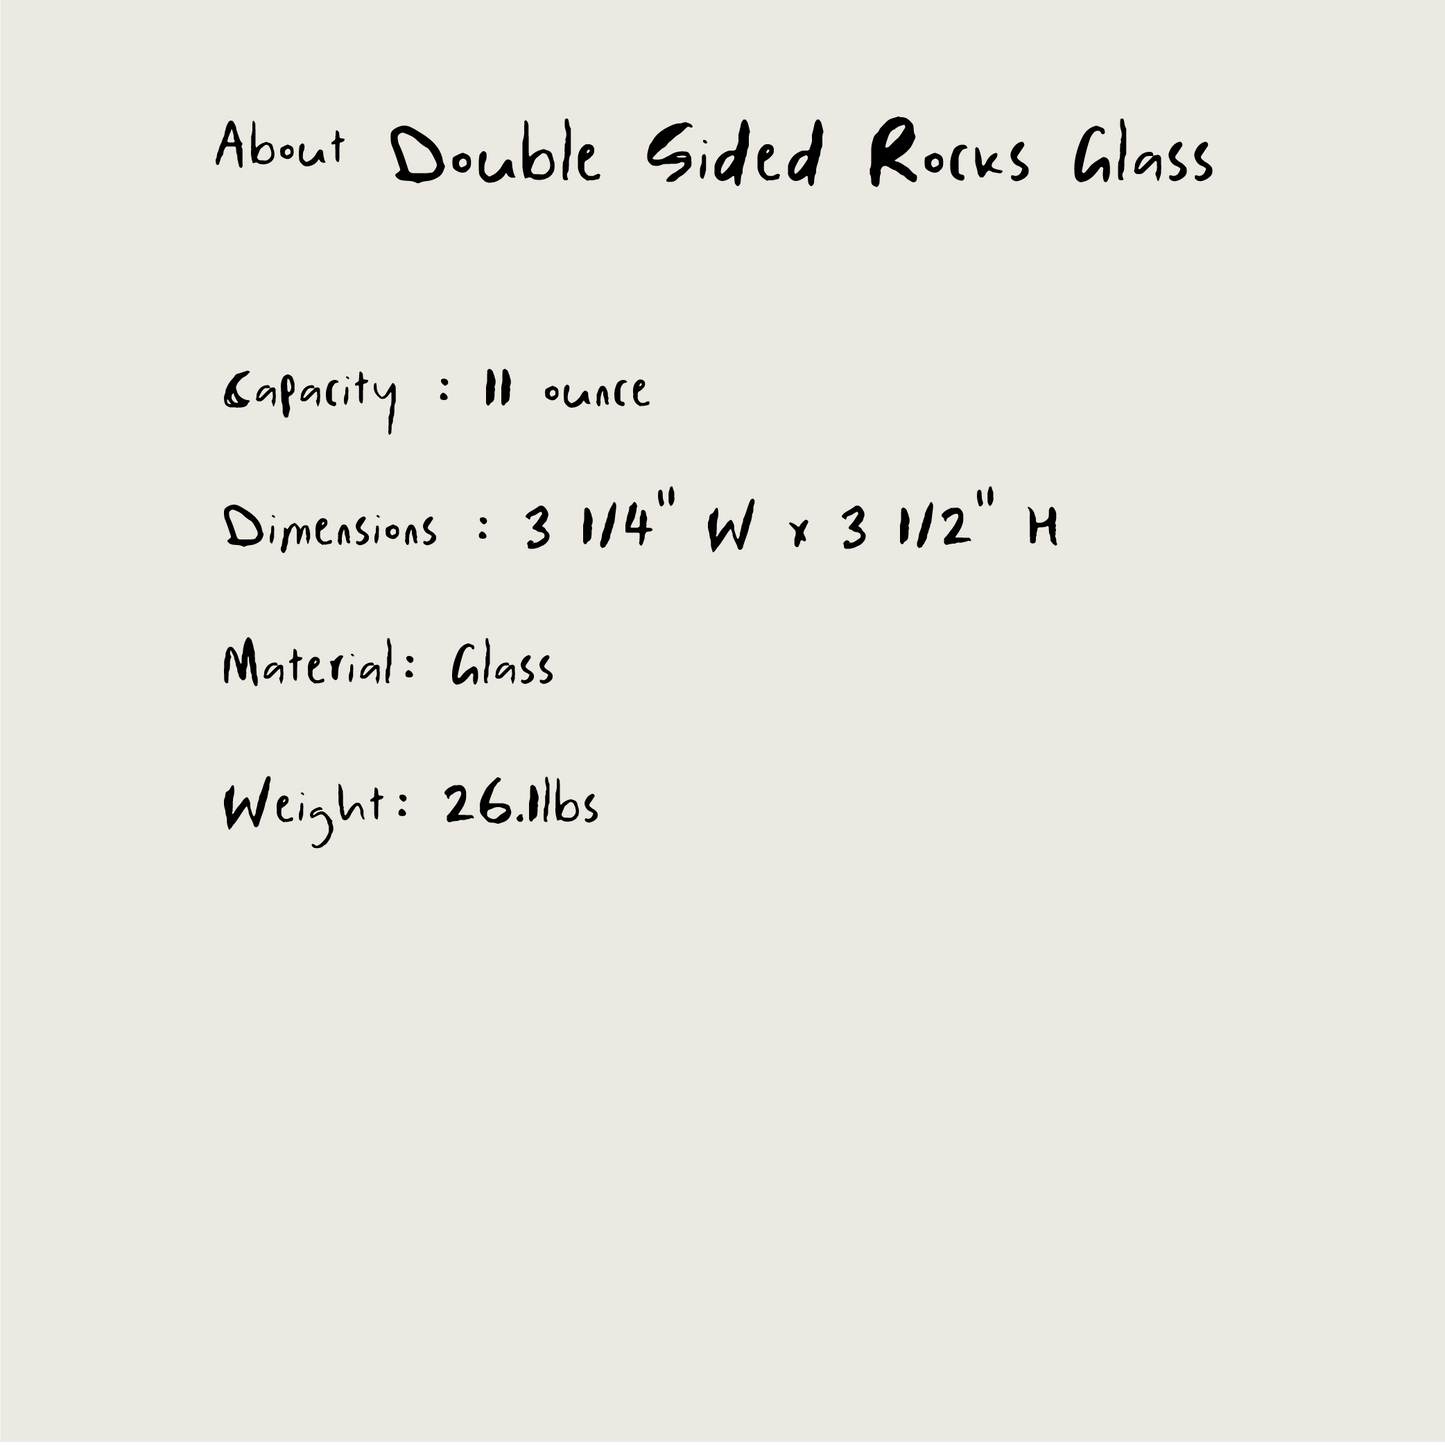 About Double Sided Rocks Glass
Capacity : 11 ounce
Dimensions : 3 1/4" W x 3 1/2" H
Material: Glass
Weight: 26.1lbs